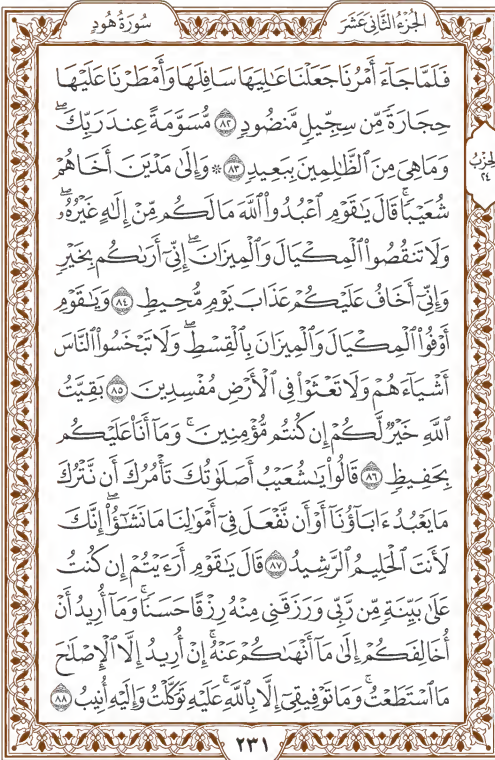 الجُزْءُ الثَّانِي عَشَرَ
سُورَةُ هُودٍ
فَلَمَّا جَآءَ أَمْرُنَا جَعَلْنَا عَٰلِيَهَا سَافِلَهَا وَأَمْطَرْنَا عَلَيْهَا
حِجَارَةً مِّن سِجِّيلٍ مَّنضُودٍ ٨٢ مُّسَوَّمَةً عِندَ رَبِّكَۖ
وَمَا هِيَ مِنَ ٱلظَّٰلِمِينَ بِبَعِيدٍ ٨٣ ۞ وَإِلَىٰ مَدْيَنَ أَخَاهُمْ
شُعَيْبًاۚ قَالَ يَٰقَوْمِ ٱعْبُدُوا۟ ٱللَّهَ مَا لَكُم مِّنْ إِلَٰهٍ غَيْرُهُۥۖ
وَلَا تَنقُصُوا۟ ٱلْمِكْيَالَ وَٱلْمِيزَانَۖ إِنِّىٓ أَرَىٰكُم بِخَيْرٍ
وَإِنِّىٓ أَخَافُ عَلَيْكُمْ عَذَابَ يَوْمٍ مُّحِيطٍ ٨٤ وَيَٰقَوْمِ
أَوْفُوا۟ ٱلْمِكْيَالَ وَٱلْمِيزَانَ بِٱلْقِسْطِۖ وَلَا تَبْخَسُوا۟ ٱلنَّاسَ
أَشْيَآءَهُمْ وَلَا تَعْثَوْا۟ فِى ٱلْأَرْضِ مُفْسِدِينَ ٨٥ بَقِيَّتُ
ٱللَّهِ خَيْرٌ لَّكُمْ إِن كُنتُم مُّؤْمِنِينَۚ وَمَآ أَنَا۠ عَلَيْكُم
بِحَفِيظٍ ٨٦ قَالُوا۟ يَٰشُعَيْبُ أَصَلَوٰتُكَ تَأْمُرُكَ أَن نَّتْرُكَ
مَا يَعْبُدُ ءَابَآؤُنَآ أَوْ أَن نَّفْعَلَ فِىٓ أَمْوَٰلِنَا مَا نَشَٰٓؤُا۟ۖ إِنَّكَ
لَأَنتَ ٱلْحَلِيمُ ٱلرَّشِيدُ ٨٧ قَالَ يَٰقَوْمِ أَرَءَيْتُمْ إِن كُنتُ
عَلَىٰ بَيِّنَةٍ مِّن رَّبِّى وَرَزَقَنِى مِنْهُ رِزْقًا حَسَنًاۚ وَمَآ أُرِيدُ أَنْ
أُخَالِفَكُمْ إِلَىٰ مَآ أَنْهَىٰكُمْ عَنْهُۚ إِنْ أُرِيدُ إِلَّا ٱلْإِصْلَٰحَ
مَا ٱسْتَطَعْتُۚ وَمَا تَوْفِيقِىٓ إِلَّا بِٱللَّهِۚ عَلَيْهِ تَوَكَّلْتُ وَإِلَيْهِ أُنِيبُ ٨٨
الحِزْبُ
٢٤
٢٣١